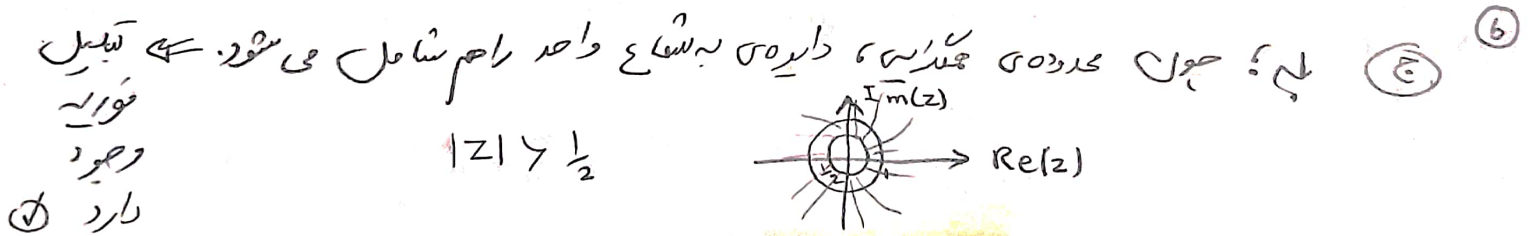 ۶
ج بله؛ چون محدوده‌ی همگرایی، دایره‌ی به شعاع واحد را هم شامل می‌شود. ⇐ تبدیل
فوریه
وجود
دارد ✓
|z| > 1/2
Im(z)
Re(z)
1/2
1